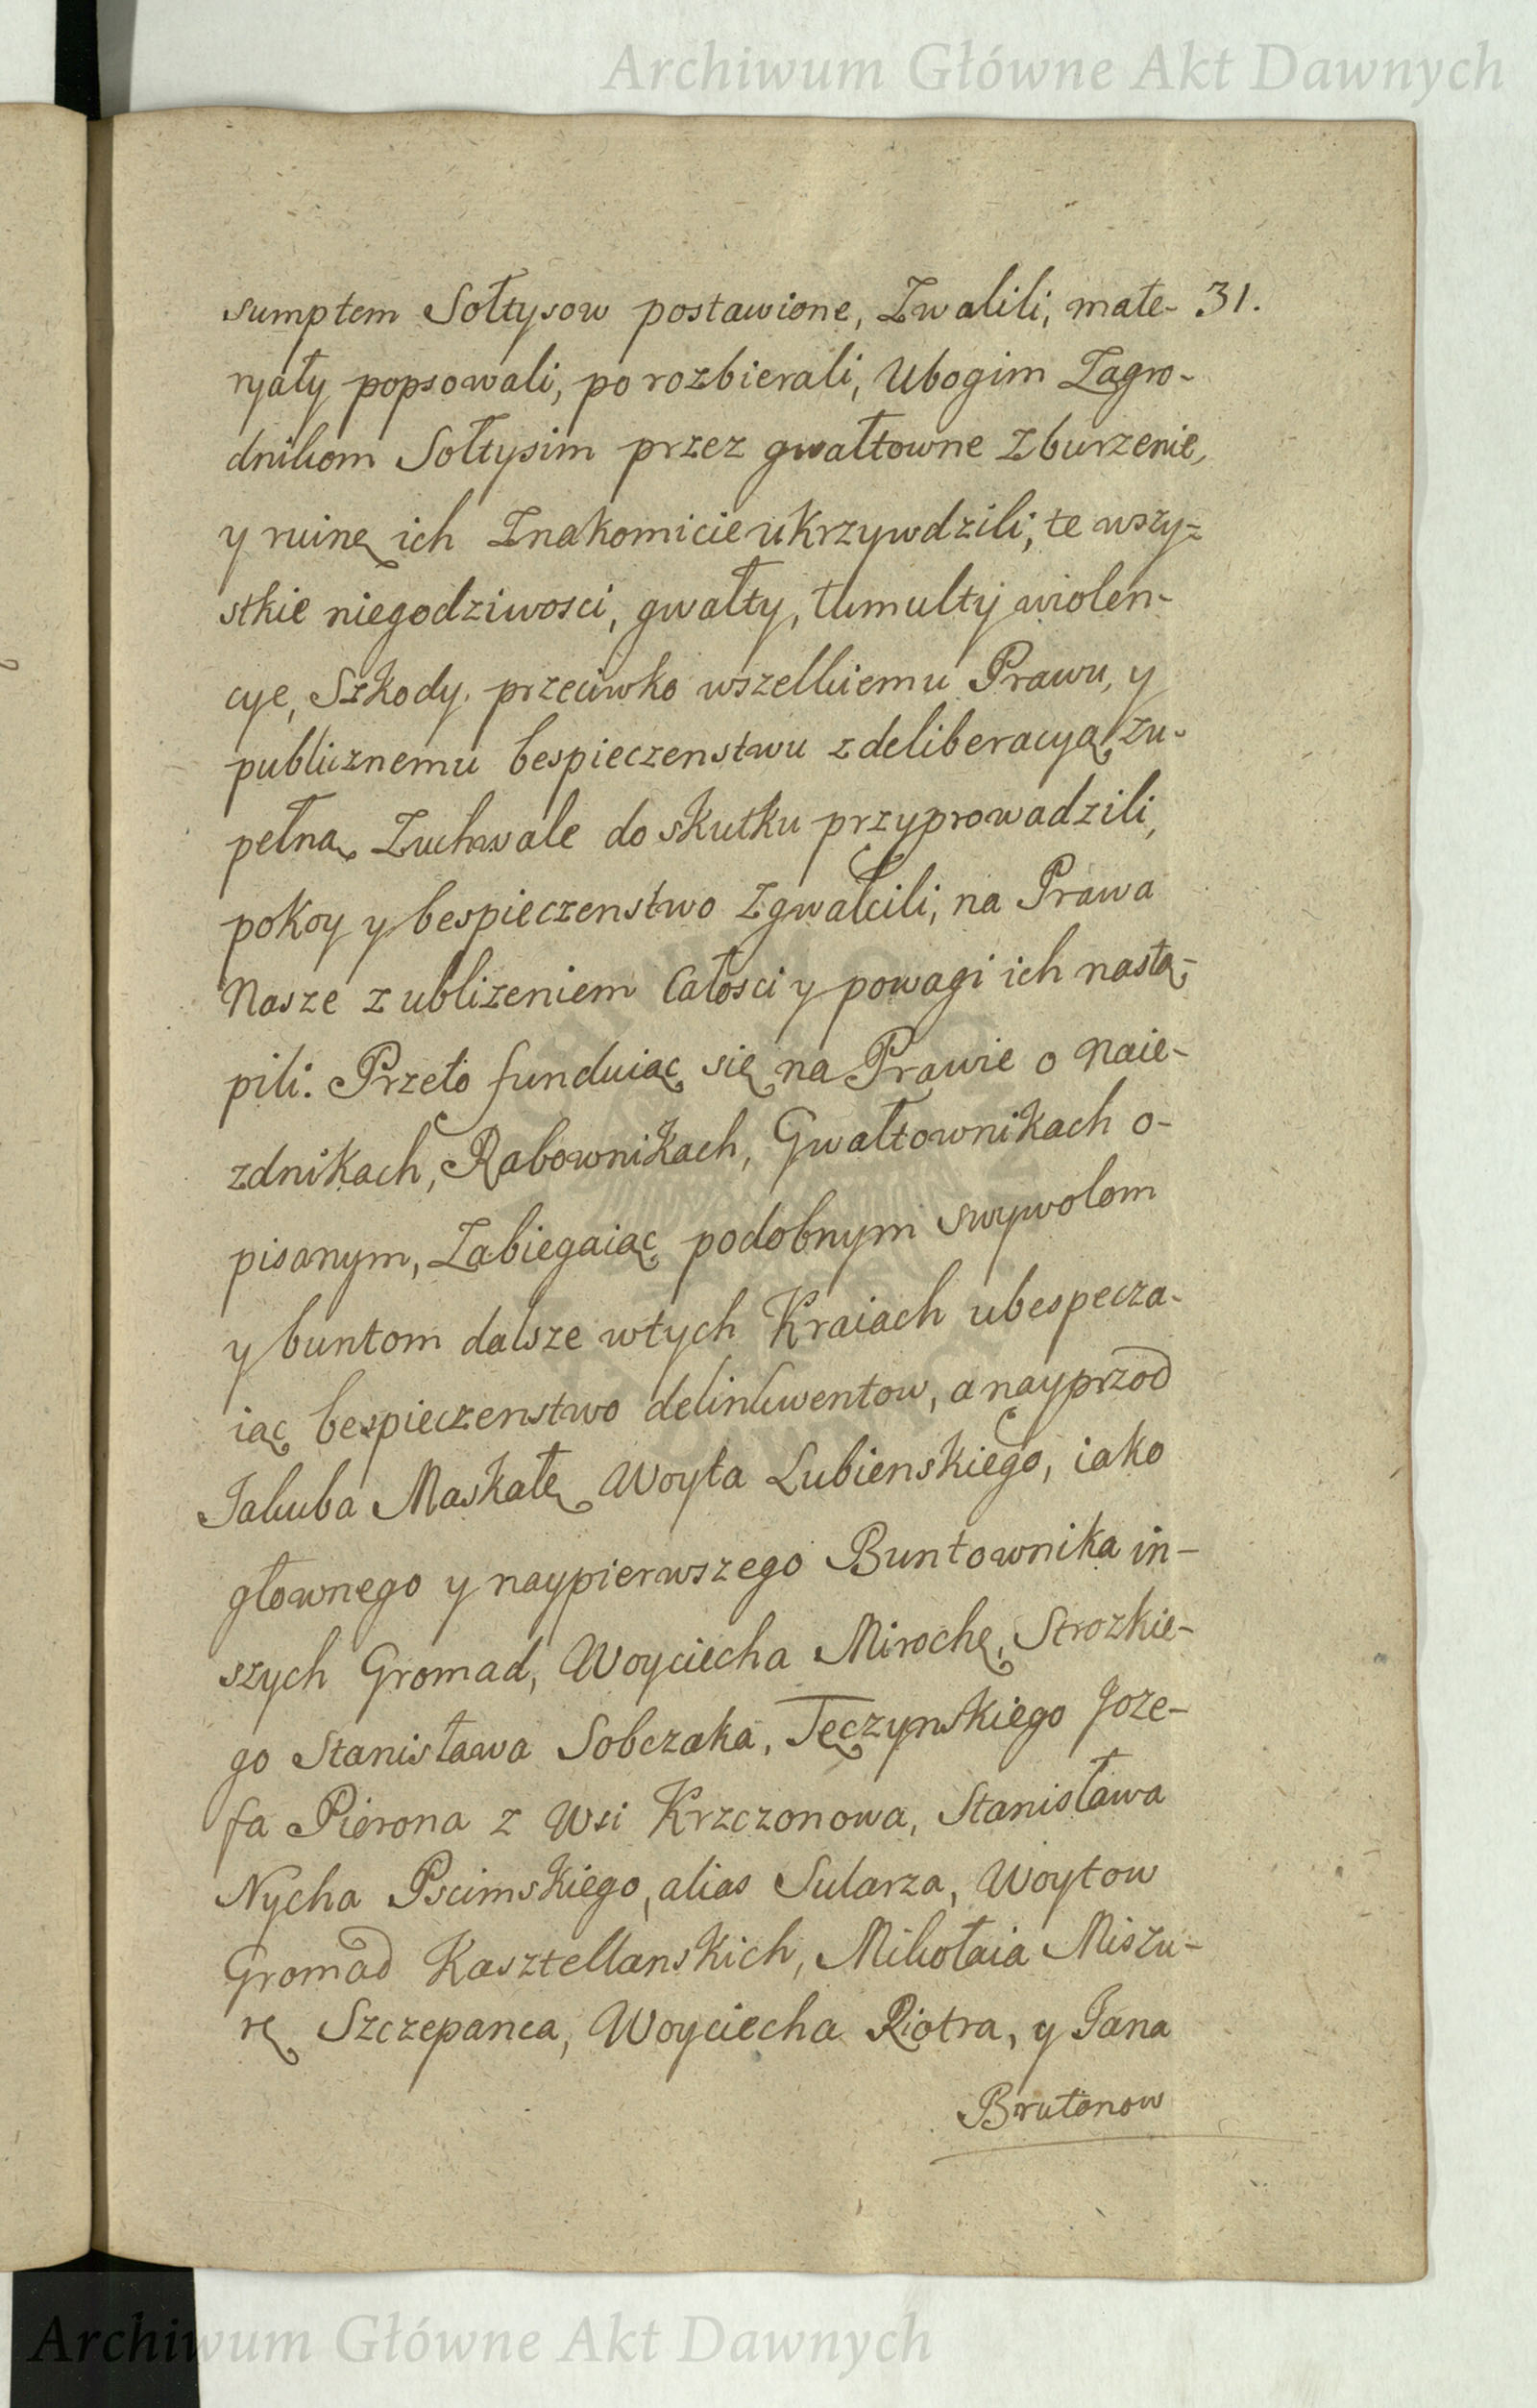 Archiwum Główne Akt Dawnych
sumptem Sołtysow postawione, Zwalili, mate- 31.
ryały popsowali, porozbierali, Ubogim Zagro-
dnikom Sołtysim przez gwałtowne Zburzenie,
y ruinę ich Znakomicie ukrzywdzili; te wszy=
stkie niegodziwosci, gwałty, tumulty, violen-
cye, Szkody, przeciwko wszelkiemu Prawu, y
publicznemu bespieczenstwu z deliberacyą zu-
pełną Zuchwale do skutku przyprowadzili,
pokoy y bespieczenstwo Zgwałcili, na Prawa
Nasze z ublizeniem Całosci y powagi ich nastą-
pili. Przeto funduiąc się na Prawie o Naie-
zdnikach, Rabownikach, Gwałtownikach o-
pisanym, Zabiegaiąc podobnym swywolom
y buntom dalsze w tych Kraiach ubespecza-
iąc bespieczenstwo delinkwentow, a nayprzod
Jakuba Maskałę Woyta Lubienskiego, iako
głownego y naypierwszego Buntownika in-
szych Gromad, Woyciecha Mirochę, Strozkie-
go Stanisława Sobczaka, Tęczynskiego Joze-
fa Pierona z Wsi Krzczonowa, Stanisława
Nycha Pscimskiego, alias Sularza, Woytow
Gromad Kasztellanskich, Mikołaia Miszu-
rę Szczepanca, Woyciecha Piotra, y Jana
Brutonow
Archiwum Główne Akt Dawnych